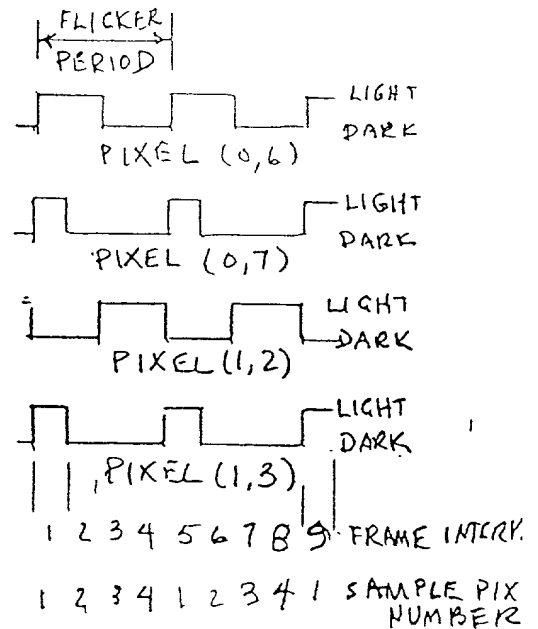 FLICKER
PERIOD
LIGHT
DARK
PIXEL (0,6)
LIGHT
DARK
PIXEL (0,7)
LIGHT
DARK
PIXEL (1,2)
LIGHT
DARK
PIXEL (1,3)
1 2 3 4 5 6 7 8 9 FRAME INTERV.
1 2 3 4 1 2 3 4 1 SAMPLE PIX
NUMBER